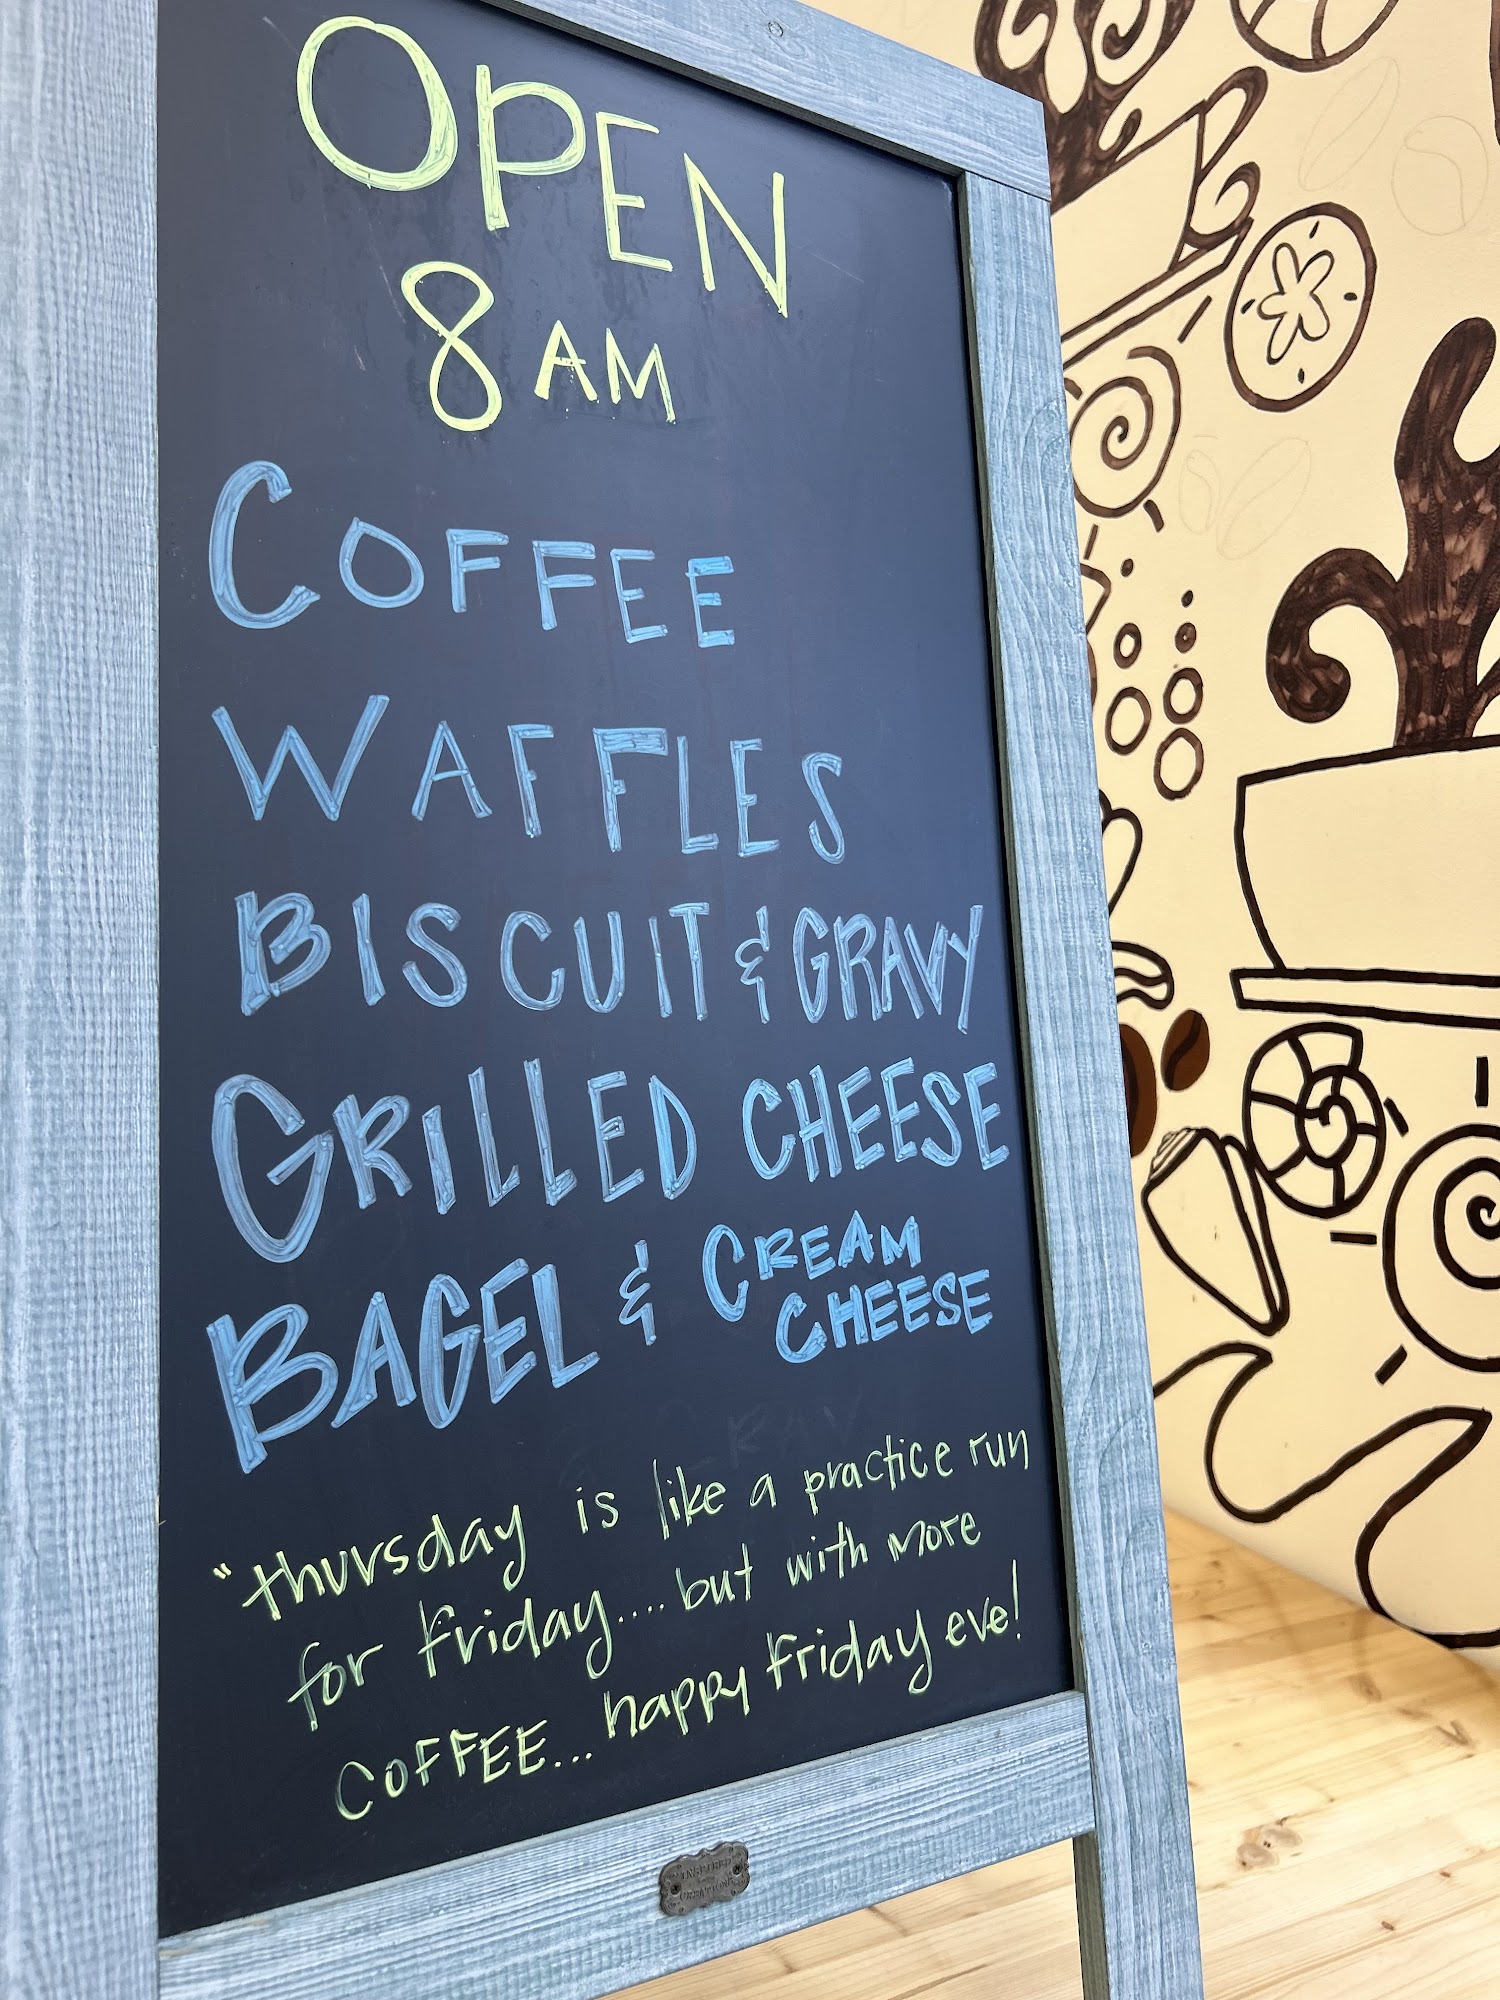 OPEN
8 AM
COFFEE
WAFFLES
BISCUIT & GRAVY
GRILLED CHEESE
BAGEL & CREAM
CHEESE
"thursday is like a practice run
for friday.... but with more
COFFEE... happy friday eve!
INSPIRED
CREATIONS